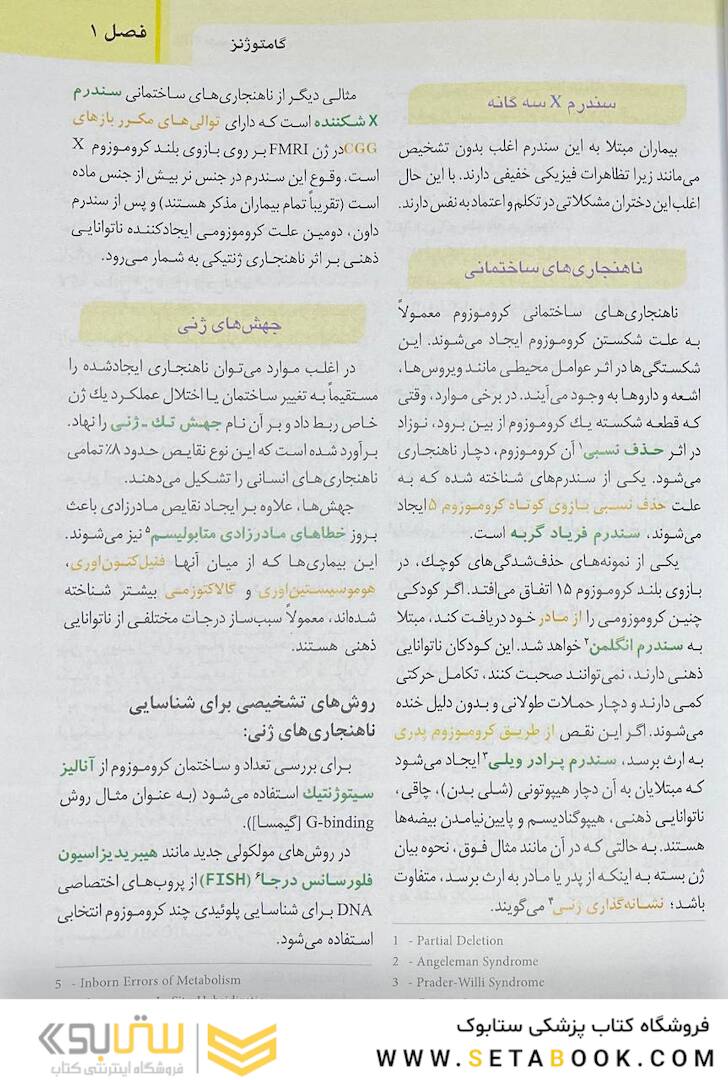 فصل ۱
گامتوژنز
سندرم X سه گانه
بیماران مبتلا به این سندرم اغلب بدون تشخیص
می‌مانند زیرا تظاهرات فیزیکی خفیفی دارند. با این حال
اغلب این دختران مشکلاتی در تکلم و اعتماد به نفس دارند.
ناهنجاری‌های ساختمانی
ناهنجاری‌های ساختمانی کروموزوم معمولاً
به علت شکستن کروموزوم ایجاد می‌شوند. این
شکستگی‌ها در اثر عوامل محیطی مانند ویروس‌ها،
اشعه و داروها به وجود می‌آیند. در برخی موارد، وقتی
که قطعه شکسته یک کروموزوم از بین برود، نوزاد
در اثر حذف نسبی۱ آن کروموزوم، دچار ناهنجاری
می‌شود. یکی از سندرم‌های شناخته شده که به
علت حذف نسبی بازوی کوتاه کروموزوم ۵ ایجاد
می‌شوند، سندرم فریاد گربه است.
یکی از نمونه‌های حذف‌شدگی‌های کوچک، در
بازوی بلند کروموزوم ۱۵ اتفاق می‌افتد. اگر کودکی
چنین کروموزومی را از مادر خود دریافت کند، مبتلا
به سندرم انگلمن۲ خواهد شد. این کودکان ناتوانایی
ذهنی دارند، نمی‌توانند صحبت کنند، تکامل حرکتی
کمی دارند و دچار حملات طولانی و بدون دلیل خنده
می‌شوند. اگر این نقص از طریق کروموزوم پدری
به ارث برسد، سندرم پرادر ویلی۳ ایجاد می‌شود
که مبتلایان به آن دچار هیپوتونی (شلی بدن)، چاقی،
ناتوانایی ذهنی، هیپوگنادیسم و پایین‌نیامدن بیضه‌ها
هستند. به حالتی که در آن مانند مثال فوق، نحوه بیان
ژن بسته به اینکه از پدر یا مادر به ارث برسد، متفاوت
باشد؛ نشانه‌گذاری ژنی۴ می‌گویند.
1 - Partial Deletion
2 - Angeleman Syndrome
3 - Prader-Willi Syndrome
مثالی دیگر از ناهنجاری‌های ساختمانی سندرم
X شکننده است که دارای توالی‌های مکرر بازهای
CGG در ژن FMRI بر روی بازوی بلند کروموزوم X
است. وقوع این سندرم در جنس نر بیش از جنس ماده
است (تقریباً تمام بیماران مذکر هستند) و پس از سندرم
داون، دومین علت کروموزومی ایجادکننده ناتوانایی
ذهنی بر اثر ناهنجاری ژنتیکی به شمار می‌رود.
جهش‌های ژنی
در اغلب موارد می‌توان ناهنجاری ایجادشده را
مستقیماً به تغییر ساختمان یا اختلال عملکرد یک ژن
خاص ربط داد و بر آن نام جهش تک - ژنی را نهاد.
برآورد شده است که این نوع نقایص حدود ۸٪ تمامی
ناهنجاری‌های انسانی را تشکیل می‌دهند.
جهش‌ها، علاوه بر ایجاد نقایص مادرزادی باعث
بروز خطاهای مادرزادی متابولیسم۵ نیز می‌شوند.
این بیماری‌ها که از میان آنها فنیل‌کتون‌اوری،
هوموسیستین‌اوری و گالاکتوزمی بیشتر شناخته
شده‌اند، معمولاً سبب‌ساز درجات مختلفی از ناتوانایی
ذهنی هستند.
روش‌های تشخیصی برای شناسایی
ناهنجاری‌های ژنی:
برای بررسی تعداد و ساختمان کروموزوم از آنالیز
سیتوژنتیک استفاده می‌شود (به عنوان مثال روش
G-binding [گیمسا]).
در روش‌های مولکولی جدید مانند هیبریدیزاسیون
فلورسانس درجا۶ (FISH) از پروب‌های اختصاصی
DNA برای شناسایی پلوئیدی چند کروموزوم انتخابی
استفاده می‌شود.
5 - Inborn Errors of Metabolism
فروشگاه کتاب پزشکی ستابوک
WWW.SETABOOK.COM
ستابوک
فروشگاه اینترنتی کتاب